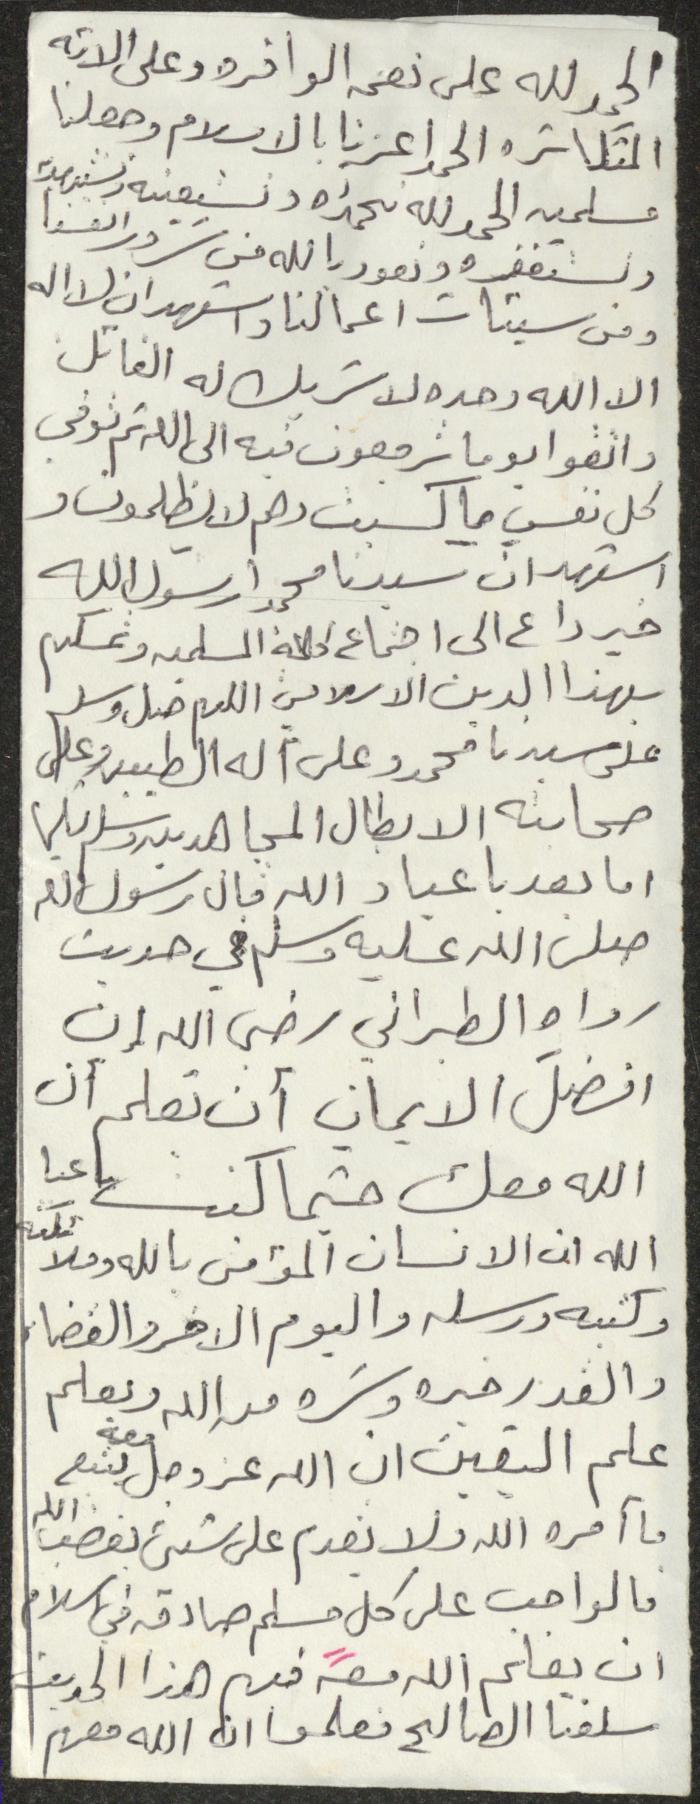 الحمد لله على نعمه الوافره وعلى الائه
المتكاثره الحمد اعزنا بالاسلام وجعلنا
مسلمين الحمد لله نحمده ونستعينه ونستهديه
ونستغفره ونعوذ بالله من شرور انفسنا
ومن سيئات اعمالنا واشهد ان لا اله
الا الله وحده لا شريك له القائل
واتقوا يوما ترجعون فيه الى الله ثم توفى
كل نفس ما كسبت وهم لا يظلمون و
اشهد ان سيدنا محمدا رسول الله
خير داع الى اجتماع كلمة المسلمين وتمسكهم
بهذا الدين الاسلامي اللهم صل وسلم
على سيدنا محمد وعلى آله الطيبين وعلى
صحابته الابطال المجاهدين وسلم تسليما
اما بعد يا عباد الله قال رسول الله
صلى الله عليه وسلم في حديث
رواه الطبراني رضي الله إن
افضل الايمان أن تعلم أن
الله معك حيثما كنت يا عباد
الله ان الانسان المؤمن بالله وملائكته
وكتبه ورسله واليوم الاخر والقضاء
والقدر خيره وشره من الله ويعلم
علم اليقين ان الله عز وجل معه يتبع
ما أمره الله ولا يقدم على شيئ يغضب الله
فالواجب على كل مسلم صادق في اسلامه
ان يعلم الله معه فهم هذا الحديث
سلفنا الصالح فعلموا ان الله معهم